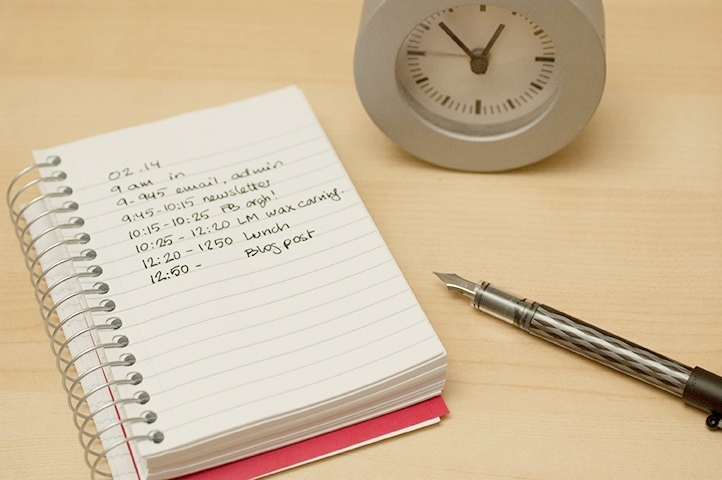 02.14
9am in
9-945 email, admin
9:45-10:15 newsletter
10:15-10:25 FB argh!
10:25-12:20 LM wax carving.
12:20-1250 Lunch
12:50- Blog post